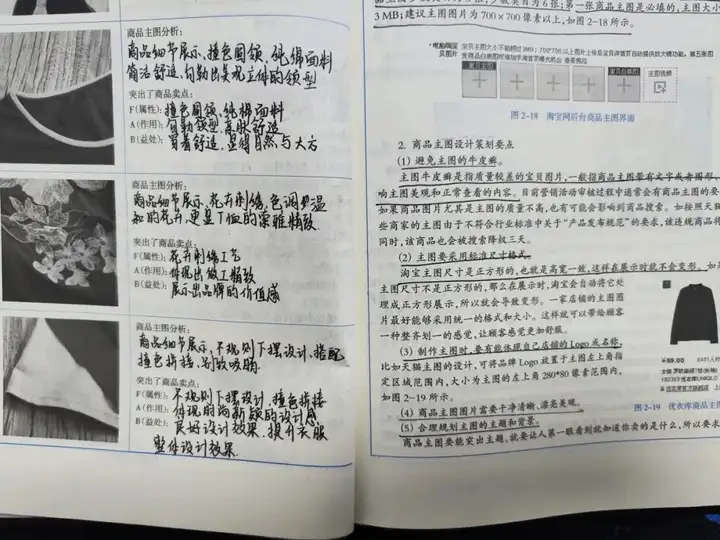 商品主图分析:
商品细节展示、撞色圆领、纯棉面料
简洁舒适,勾勒出美观立体的领型
突出了商品卖点:
F(属性): 撞色圆领、纯棉面料
A(作用): 勾勒领型,亲肤舒适
B(益处): 穿着舒适,显得自然与大方
商品主图分析:
商品细节展示、花卉刺绣,色调梦温
和的花卉,更显T恤的柔雅精致.
突出了商品卖点:
F(属性): 花卉刺绣工艺
A(作用): 体现出做工精致
B(益处): 展示出品牌的价值感
商品主图分析:
商品细节展示、不规则下摆设计,搭配
撞色拼接,别致吸睛.
突出了商品卖点:
F(属性): 不规则下摆设计,撞色拼接
A(作用): 体现时尚新颖的设计感
B(益处): 良好设计效果.提升衣服
整体设计效果.
3 MB;建议主图图片为 700×700 像素以上,如图 2-18 所示。
第五张图
宝贝主图
宝贝白底图
主图视频
图 2-18 淘宝网后台商品主图界面
2. 商品主图设计策划要点
(1) 避免主图的牛皮癣。
主图牛皮癣是指质量较差的宝贝图片,一般指商品主图带有文字或者图形,
响主图美观和正常查看的内容。目前营销活动审核过程中通常会有商品主图的要
如果商品图片尤其是主图的质量不高,也有可能会影响到商品搜索。如按照天猫
些商家的主图由于不符合行业标准中关于“产品发布规范”的要求,该违规商品将
同时,该商品也会被搜索降权三天。
(2) 主图要采用标准尺寸格式。
淘宝主图尺寸是正方形的,也就是高宽一致,这样在展示时就不会变形。如
主图尺寸不是正方形的,那么在展示时,淘宝会自动将它处
理成正方形展示,所以就会导致变形。一家店铺的主图图
片最好能够采用统一的格式和大小。这样就可以带给顾客
一种整齐划一的感觉,让顾客感觉更加舒服。
(3) 制作主图时,要有能体现自己店铺的 Logo 或名称,
比如天猫主图的设计,可将品牌 Logo 放置于主图左上角指
定区域范围内,大小为主图的左上角 280*80 像素范围内,
如图 2-19 所示。
¥99.00
图 2-19 优衣库商品主图
(4) 商品主图图片需要干净清晰、漂亮美观。
(5) 合理规划主图的主题和背景。
商品主图要能突出主题,就要让人第一眼看到就知道你卖的是什么,所以要求